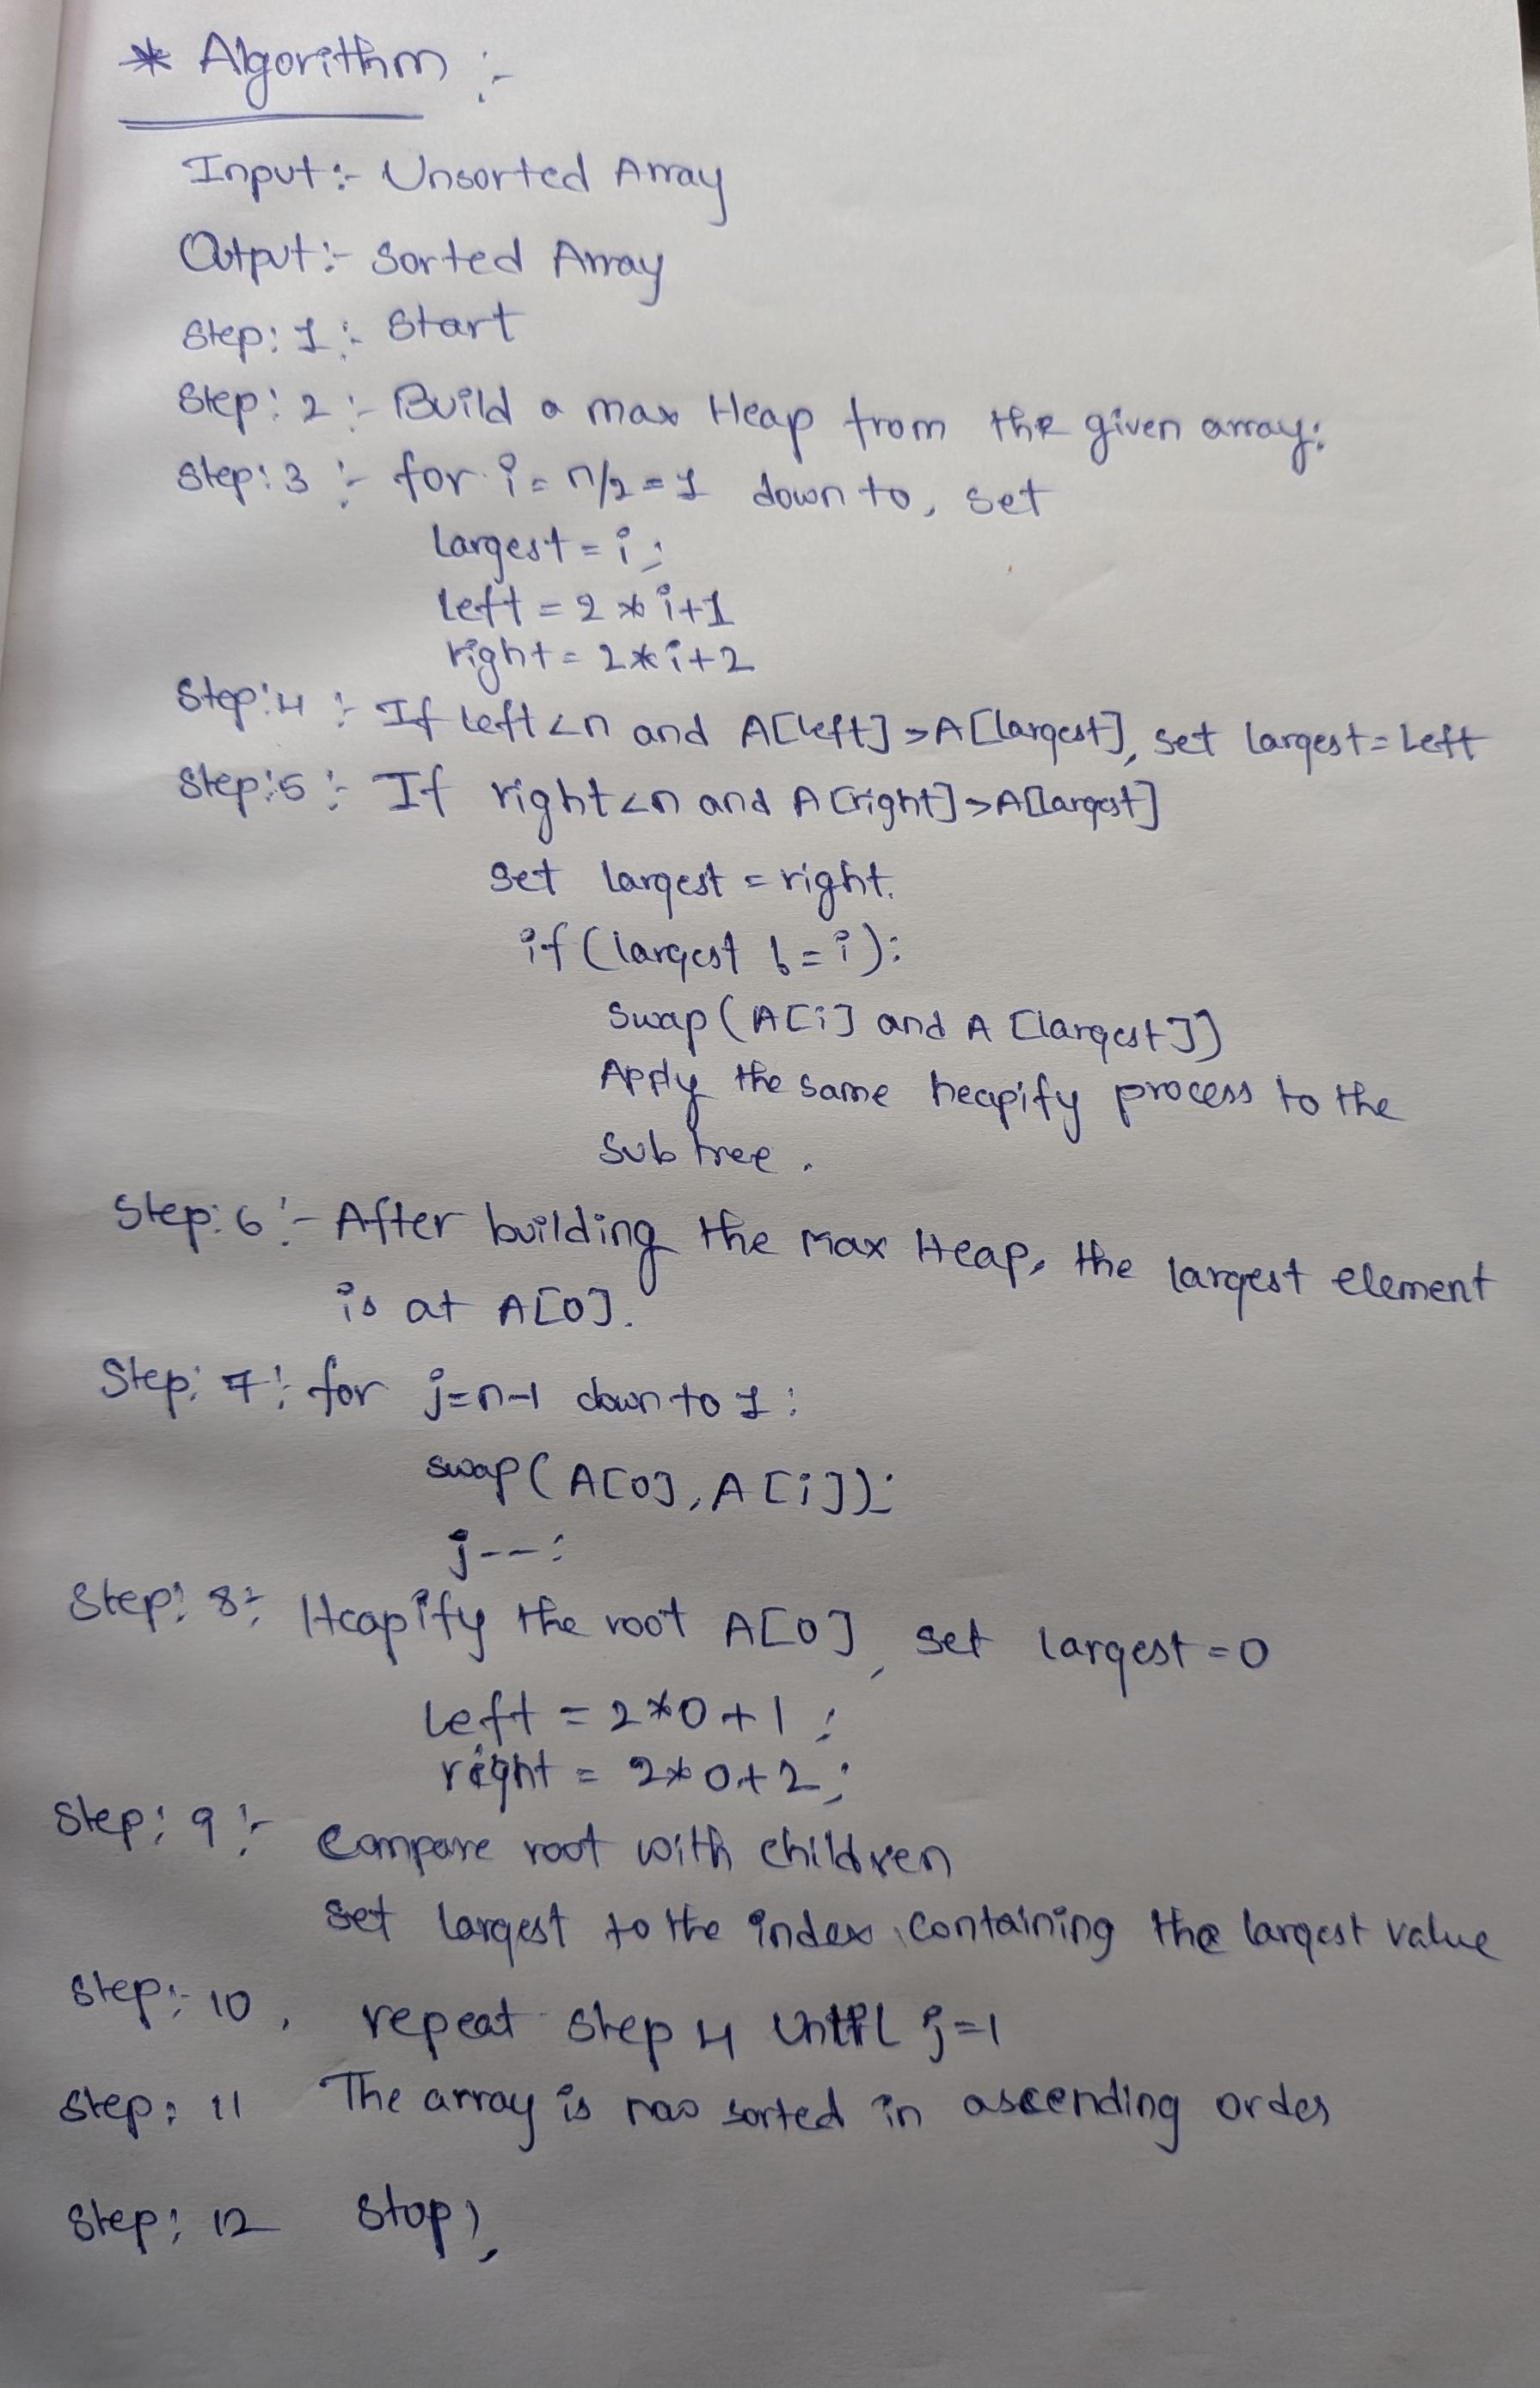 * Algorithm :-
Input :- Unsorted Array
Output :- Sorted Array
Step: 1 :- Start
Step: 2 :- Build a max Heap from the given array:
Step: 3 :- for i = n/2 = 1 down to, set
largest = i;
left = 2 * i+1
right = 2*i+2
Step: 4 :- If left < n and A[left] > A[largest], set largest = left
Step: 5 :- If right < n and A[right] > A[largest]
set largest = right.
if (largest != i):
swap (A[i] and A [largest])
Apply the same heapify process to the
sub tree.
Step: 6 :- After building the max Heap, the largest element
is at A[0].
Step: 7 : for j=n-1 down to 1 :
swap ( A[0], A [i]);
j--;
Step: 8 :- Heapify the root A[0], set largest = 0
left = 2*0+1 ;
right = 2*0+2 ;
Step: 9 :- compare root with children
set largest to the index containing the largest value
Step:- 10, repeat step 4 until j=1
Step: 11 The array is now sorted in ascending order
Step: 12 Stop;